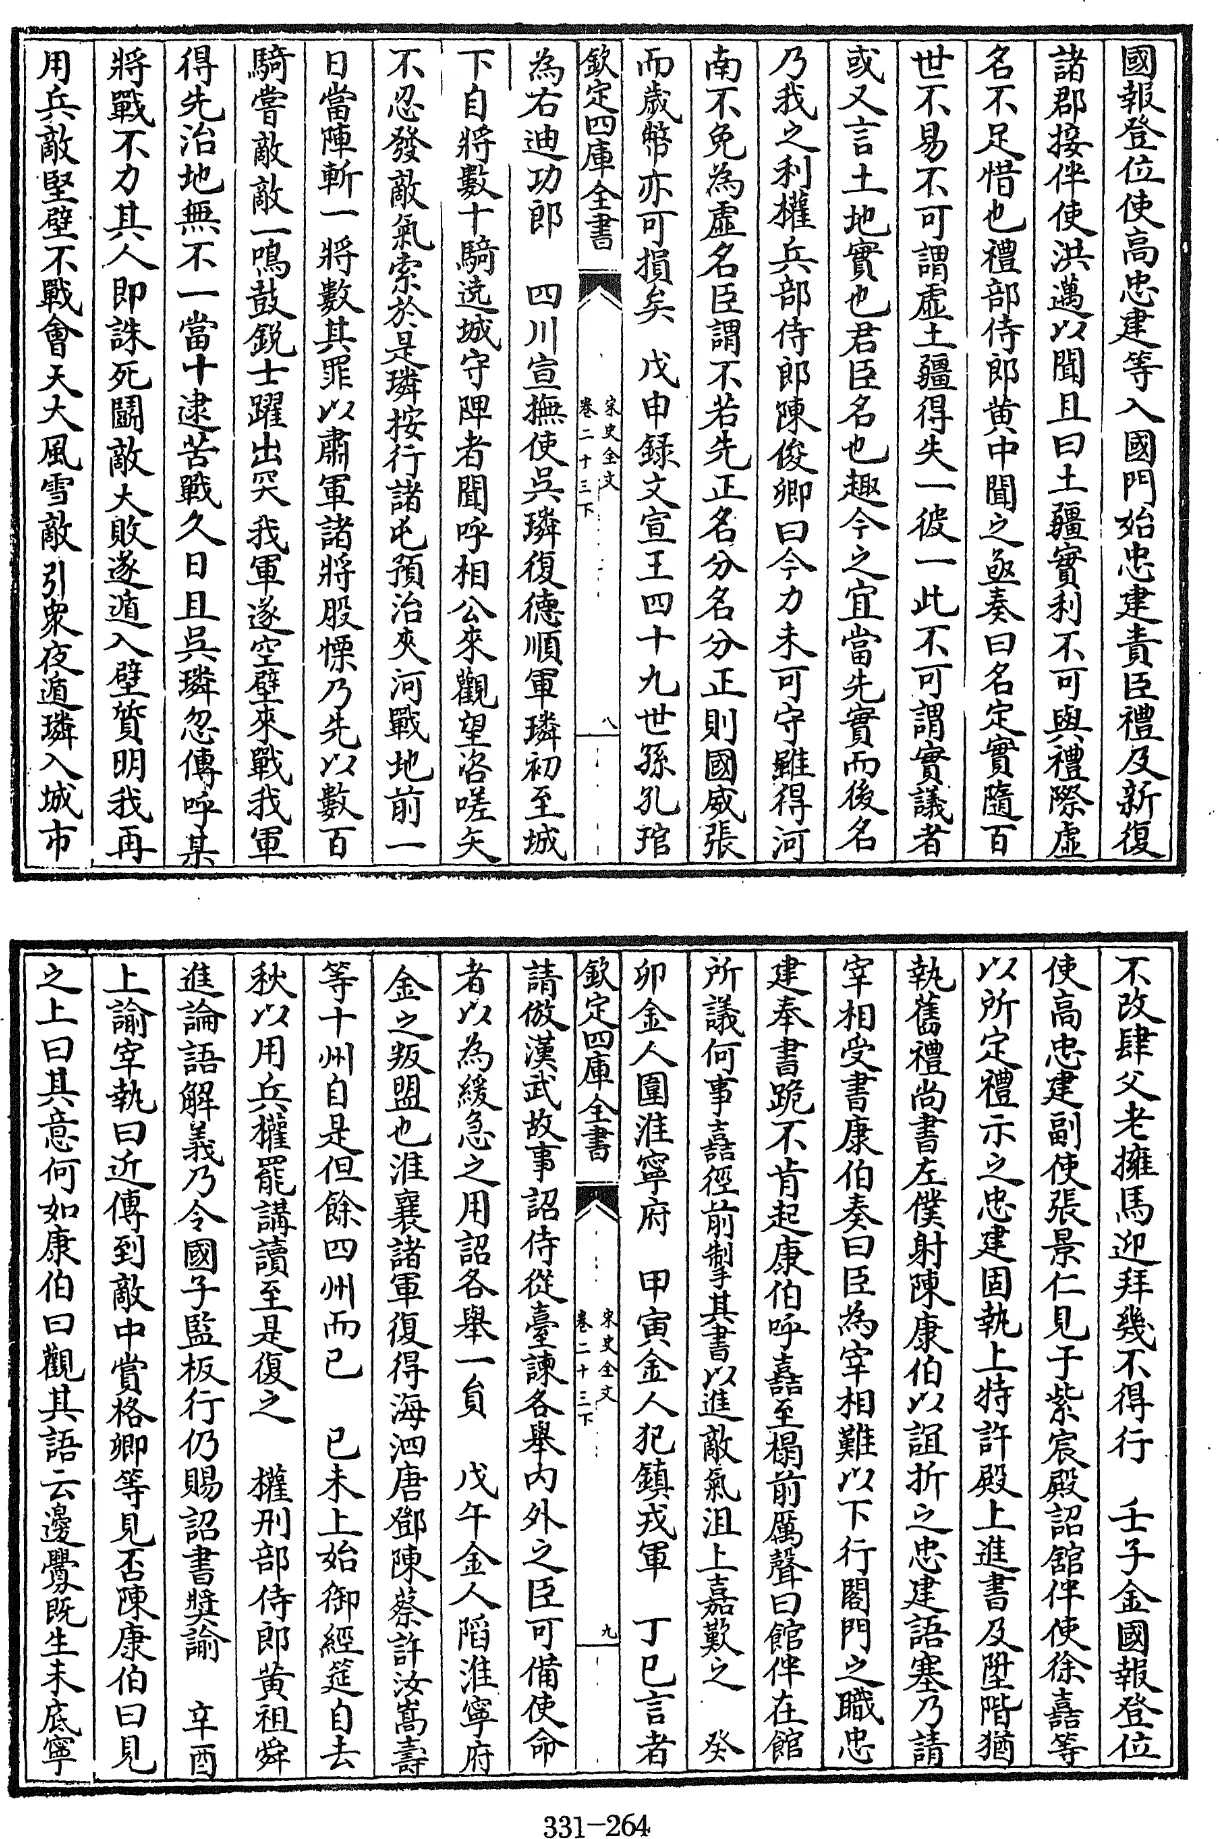 國報登位使高忠建等入國門始忠建責臣禮及新復
諸郡接伴使洪邁以聞且曰土疆實利不可與禮際虛
名不足惜也禮部侍郎黄中聞之亟奏曰名定實隨百
世不易不可謂虛土疆得失一彼一此不可謂實議者
或又言土地實也君臣名也趣今之宜當先實而後名
乃我之利權兵部侍郎陳俊卿曰今力未可守雖得河
南不免為虛名臣謂不若先正名分名分正則國威張
而歲幣亦可損矣 戊申録文宣王四十九世孫孔琯
欽定四庫全書 宋史全文 卷二十三下 八
為右迪功郎 四川宣撫使吳璘復德順軍璘初至城
下自將數十騎遶城守陴者聞呼相公來觀望咨嗟矢
不忍發敵氣索於是璘按行諸屯預治夾河戰地前一
日當陣斬一將數其罪以肅軍諸將股慄乃先以數百
騎嘗敵敵一鳴鼓鋭士躍出突我軍遂空壁來戰我軍
得先治地無不一當十逮苦戰久日且吳璘忽傳呼某
將戰不力其人即誅死鬬敵大敗遂遁入壁質明我再
用兵敵堅壁不戰會天大風雪敵引衆夜遁璘入城市
不改肆父老擁馬迎拜幾不得行 壬子金國報登位
使高忠建副使張景仁見于紫宸殿詔舘伴使徐嘉等
以所定禮示之忠建固執上特許殿上進書及陞階猶
執舊禮尚書左僕射陳康伯以誼折之忠建語塞乃請
宰相受書康伯奏曰臣為宰相難以下行閤門之職忠
建奉書跪不肯起康伯呼嘉至榻前厲聲曰館伴在館
所議何事嘉徑前掣其書以進敵氣沮上嘉歎之 癸
卯金人圍淮寧府 甲寅金人犯鎮戎軍 丁巳言者
欽定四庫全書 宋史全文 卷二十三下 九
請倣漢武故事詔侍從臺諫各舉内外之臣可備使命
者以為緩急之用詔各舉一員 戊午金人陷淮寧府
金之叛盟也淮襄諸軍復得海泗唐鄧陳蔡許汝嵩壽
等十州自是但餘四州而已 已未上始御經筵自去
秋以用兵權罷講讀至是復之 權刑部侍郎黄祖舜
進論語解義乃令國子監板行仍賜詔書奬諭 辛酉
上諭宰執曰近傳到敵中賞格卿等見否陳康伯曰見
之上曰其意何如康伯曰觀其語云邊釁既生未底寧
331-264